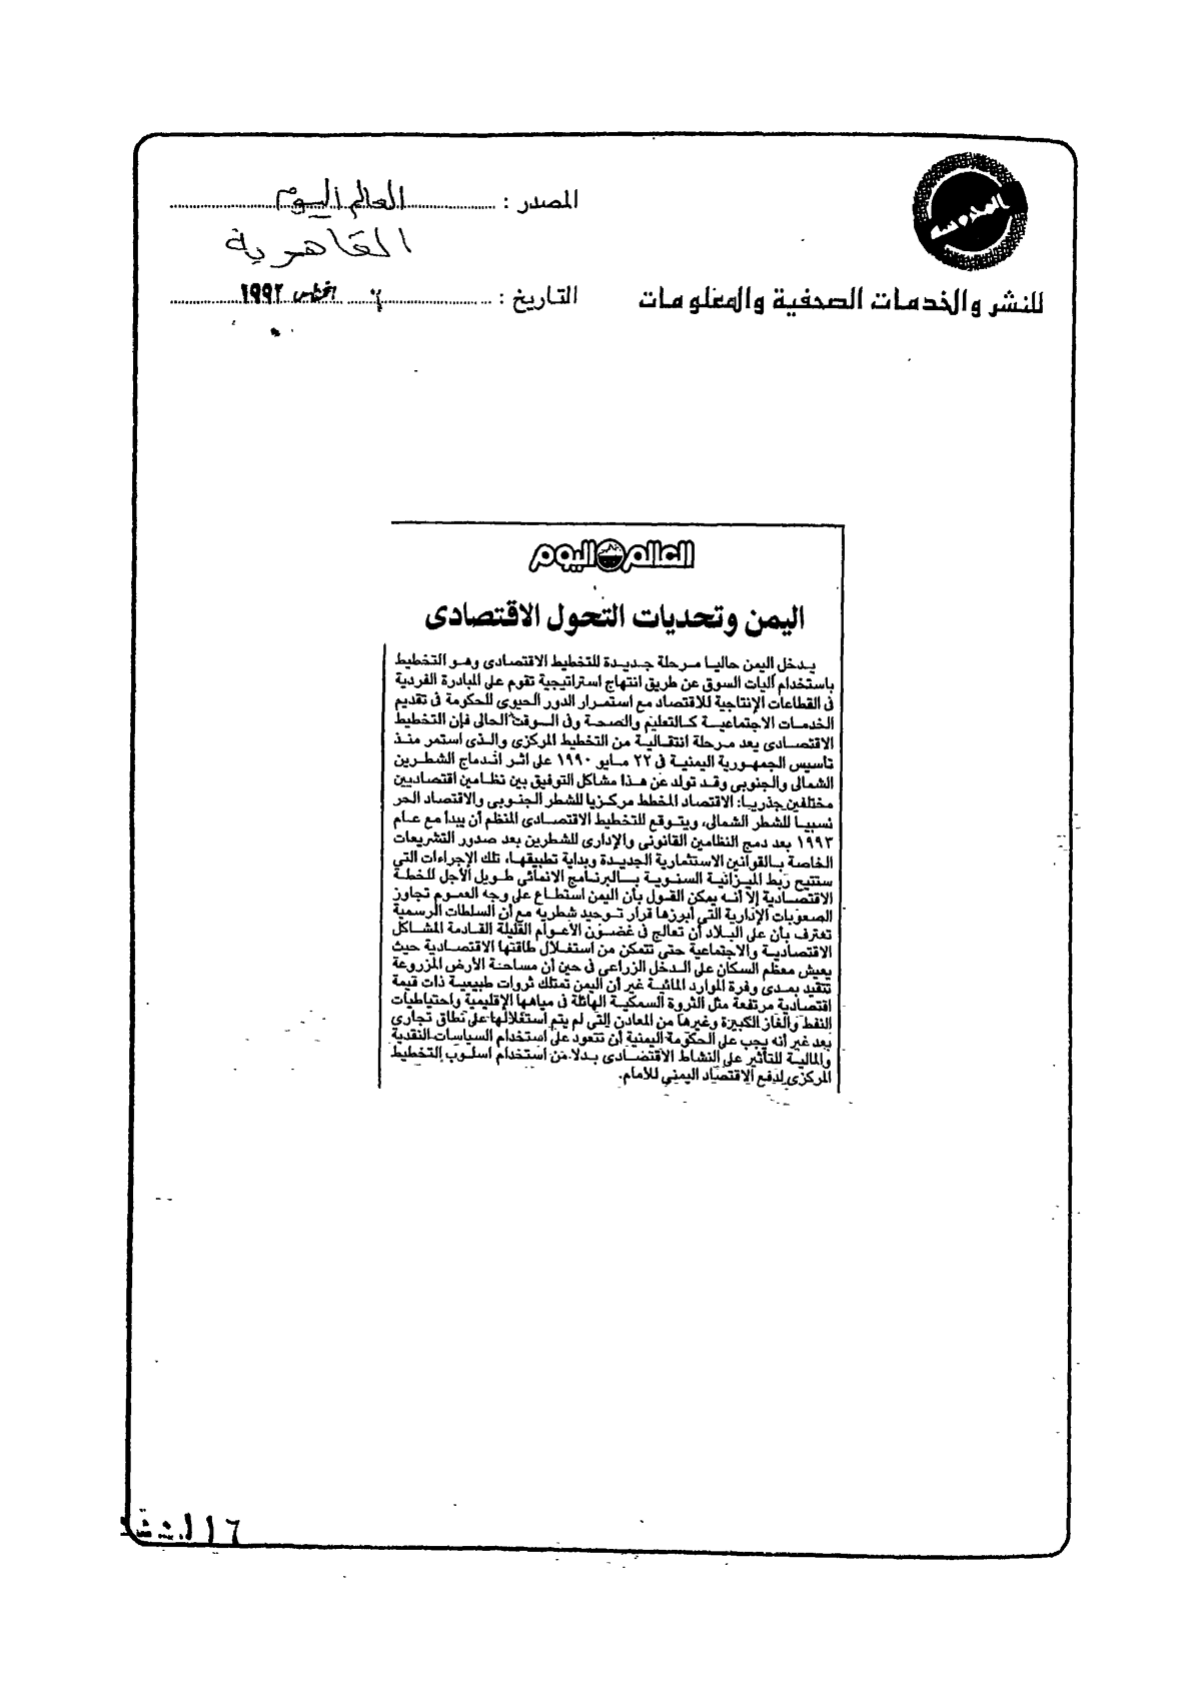 المدوسة
المصدر : العالم اليوم
القاهرية
للنشر والخدمات الصحفية والمعلومات
التاريخ : ١٩٩٢
العالم اليوم
اليمن وتحديات التحول الاقتصادى
يدخل اليمن حاليا مرحلة جديدة للتخطيط الاقتصادى وهو التخطيط
باستخدام آليات السوق عن طريق انتهاج استراتيجية تقوم على المبادرة الفردية
فى القطاعات الإنتاجية للاقتصاد مع استمرار الدور الحيوى للحكومة فى تقديم
الخدمات الاجتماعية كالتعليم والصحة وفى الوقت الحالى فإن التخطيط
الاقتصادى يعد مرحلة انتقالية من التخطيط المركزى والذى استمر منذ
تأسيس الجمهورية اليمنية فى ٢٢ مايو ١٩٩٠ على اثر اندماج الشطرين
الشمالى والجنوبى وقد تولد عن هذا مشاكل التوفيق بين نظامين اقتصاديين
مختلفين جذريا: الاقتصاد المخطط مركزيا للشطر الجنوبى والاقتصاد الحر
نسبيا للشطر الشمالى، ويتوقع للتخطيط الاقتصادى المنظم أن يبدأ مع عام
١٩٩٣ بعد دمج النظامين القانونى والإدارى للشطرين بعد صدور التشريعات
الخاصة بالقوانين الاستثمارية الجديدة وبداية تطبيقها، تلك الإجراءات التى
ستتيح ربط الميزانية السنوية بالبرنامج الانمائى طويل الأجل للخطة
الاقتصادية إلا أنه يمكن القول بأن اليمن استطاع على وجه العموم تجاوز
الصعوبات الإدارية التى أبرزها قرار توحيد شطريه مع أن السلطات الرسمية
تعترف بأن على البلاد أن تعالج فى غضون الأعوام القليلة القادمة المشاكل
الاقتصادية والاجتماعية حتى تتمكن من استغلال طاقتها الاقتصادية حيث
يعيش معظم السكان على الدخل الزراعى فى حين أن مساحنة الأرض المزروعة
تتقيد بمدى وفرة الموارد المائية غير أن اليمن تمتلك ثروات طبيعية ذات قيمة
اقتصادية مرتفعة مثل الثروة السمكية الهائلة فى مياهها الإقليمية واحتياطيات
النفط والغاز الكبيرة وغيرها من المعادن التى لم يتم استغلالها على نطاق تجارى
بعد غير انه يجب على الحكومة اليمنية أن تتعود على استخدام السياسات النقدية
والمالية للتأثير على النشاط الاقتصادى بدلا من استخدام اسلوب التخطيط
المركزى لدفع الاقتصاد اليمنى للأمام.